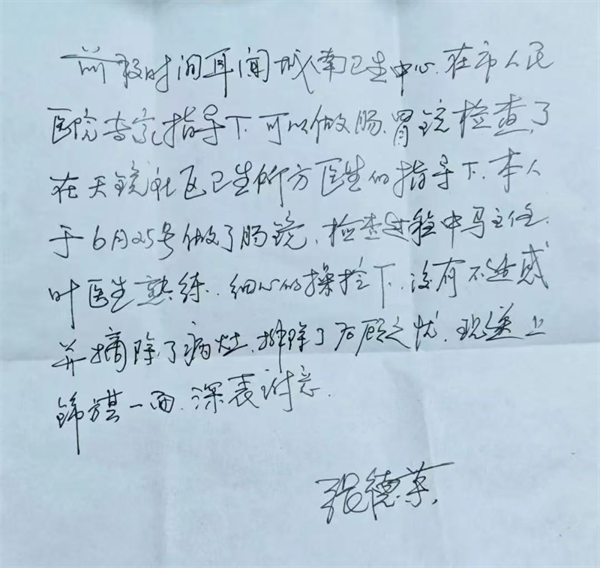 前段时间耳闻城南卫生中心.在市人民
医院专家指导下.可以做肠.胃镜检查了
在天镜社区卫生所方医生的指导下.本人
于6月25号做了肠镜.检查过程中马主任.
叶医生熟练.细心的操控下.没有不适感
并摘除了病灶.排除了后顾之忧.现送上
锦旗一面.深表谢意.
张德荣.